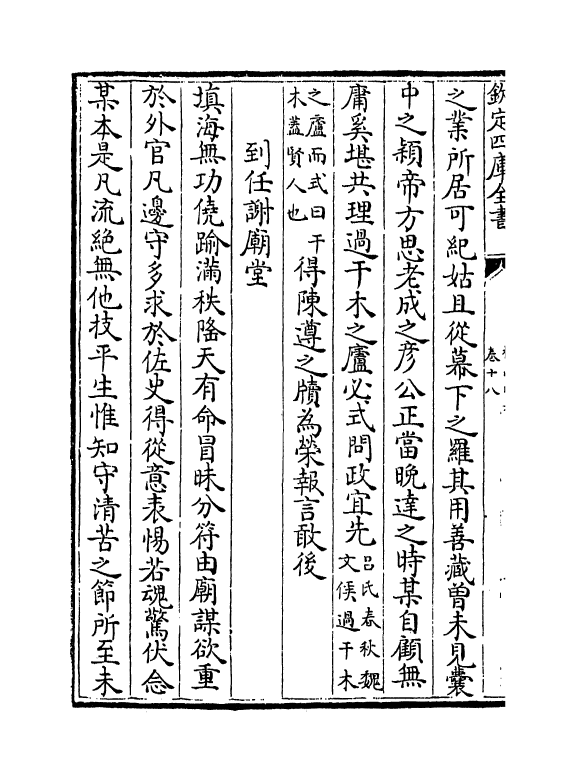 欽定四庫全書
卷十八
之業所居可紀姑且從幕下之羅其用善藏曽未見囊
中之穎帝方思老成之彦公正當晚達之時某自顧無
庸奚堪共理過干木之廬必式問政宜先吕氏春秋魏文侯過干木
之廬而式曰干木蓋賢人也得陳遵之牘為榮報言敢後
到任謝廟堂
填海無功僥踰滿秩隆天有命冒昧分符由廟謀欲重
於外官凡邊守多求於佐史得從意表惕若魂驚伏念
某本是凡流絶無他技平生惟知守清苦之節所至未